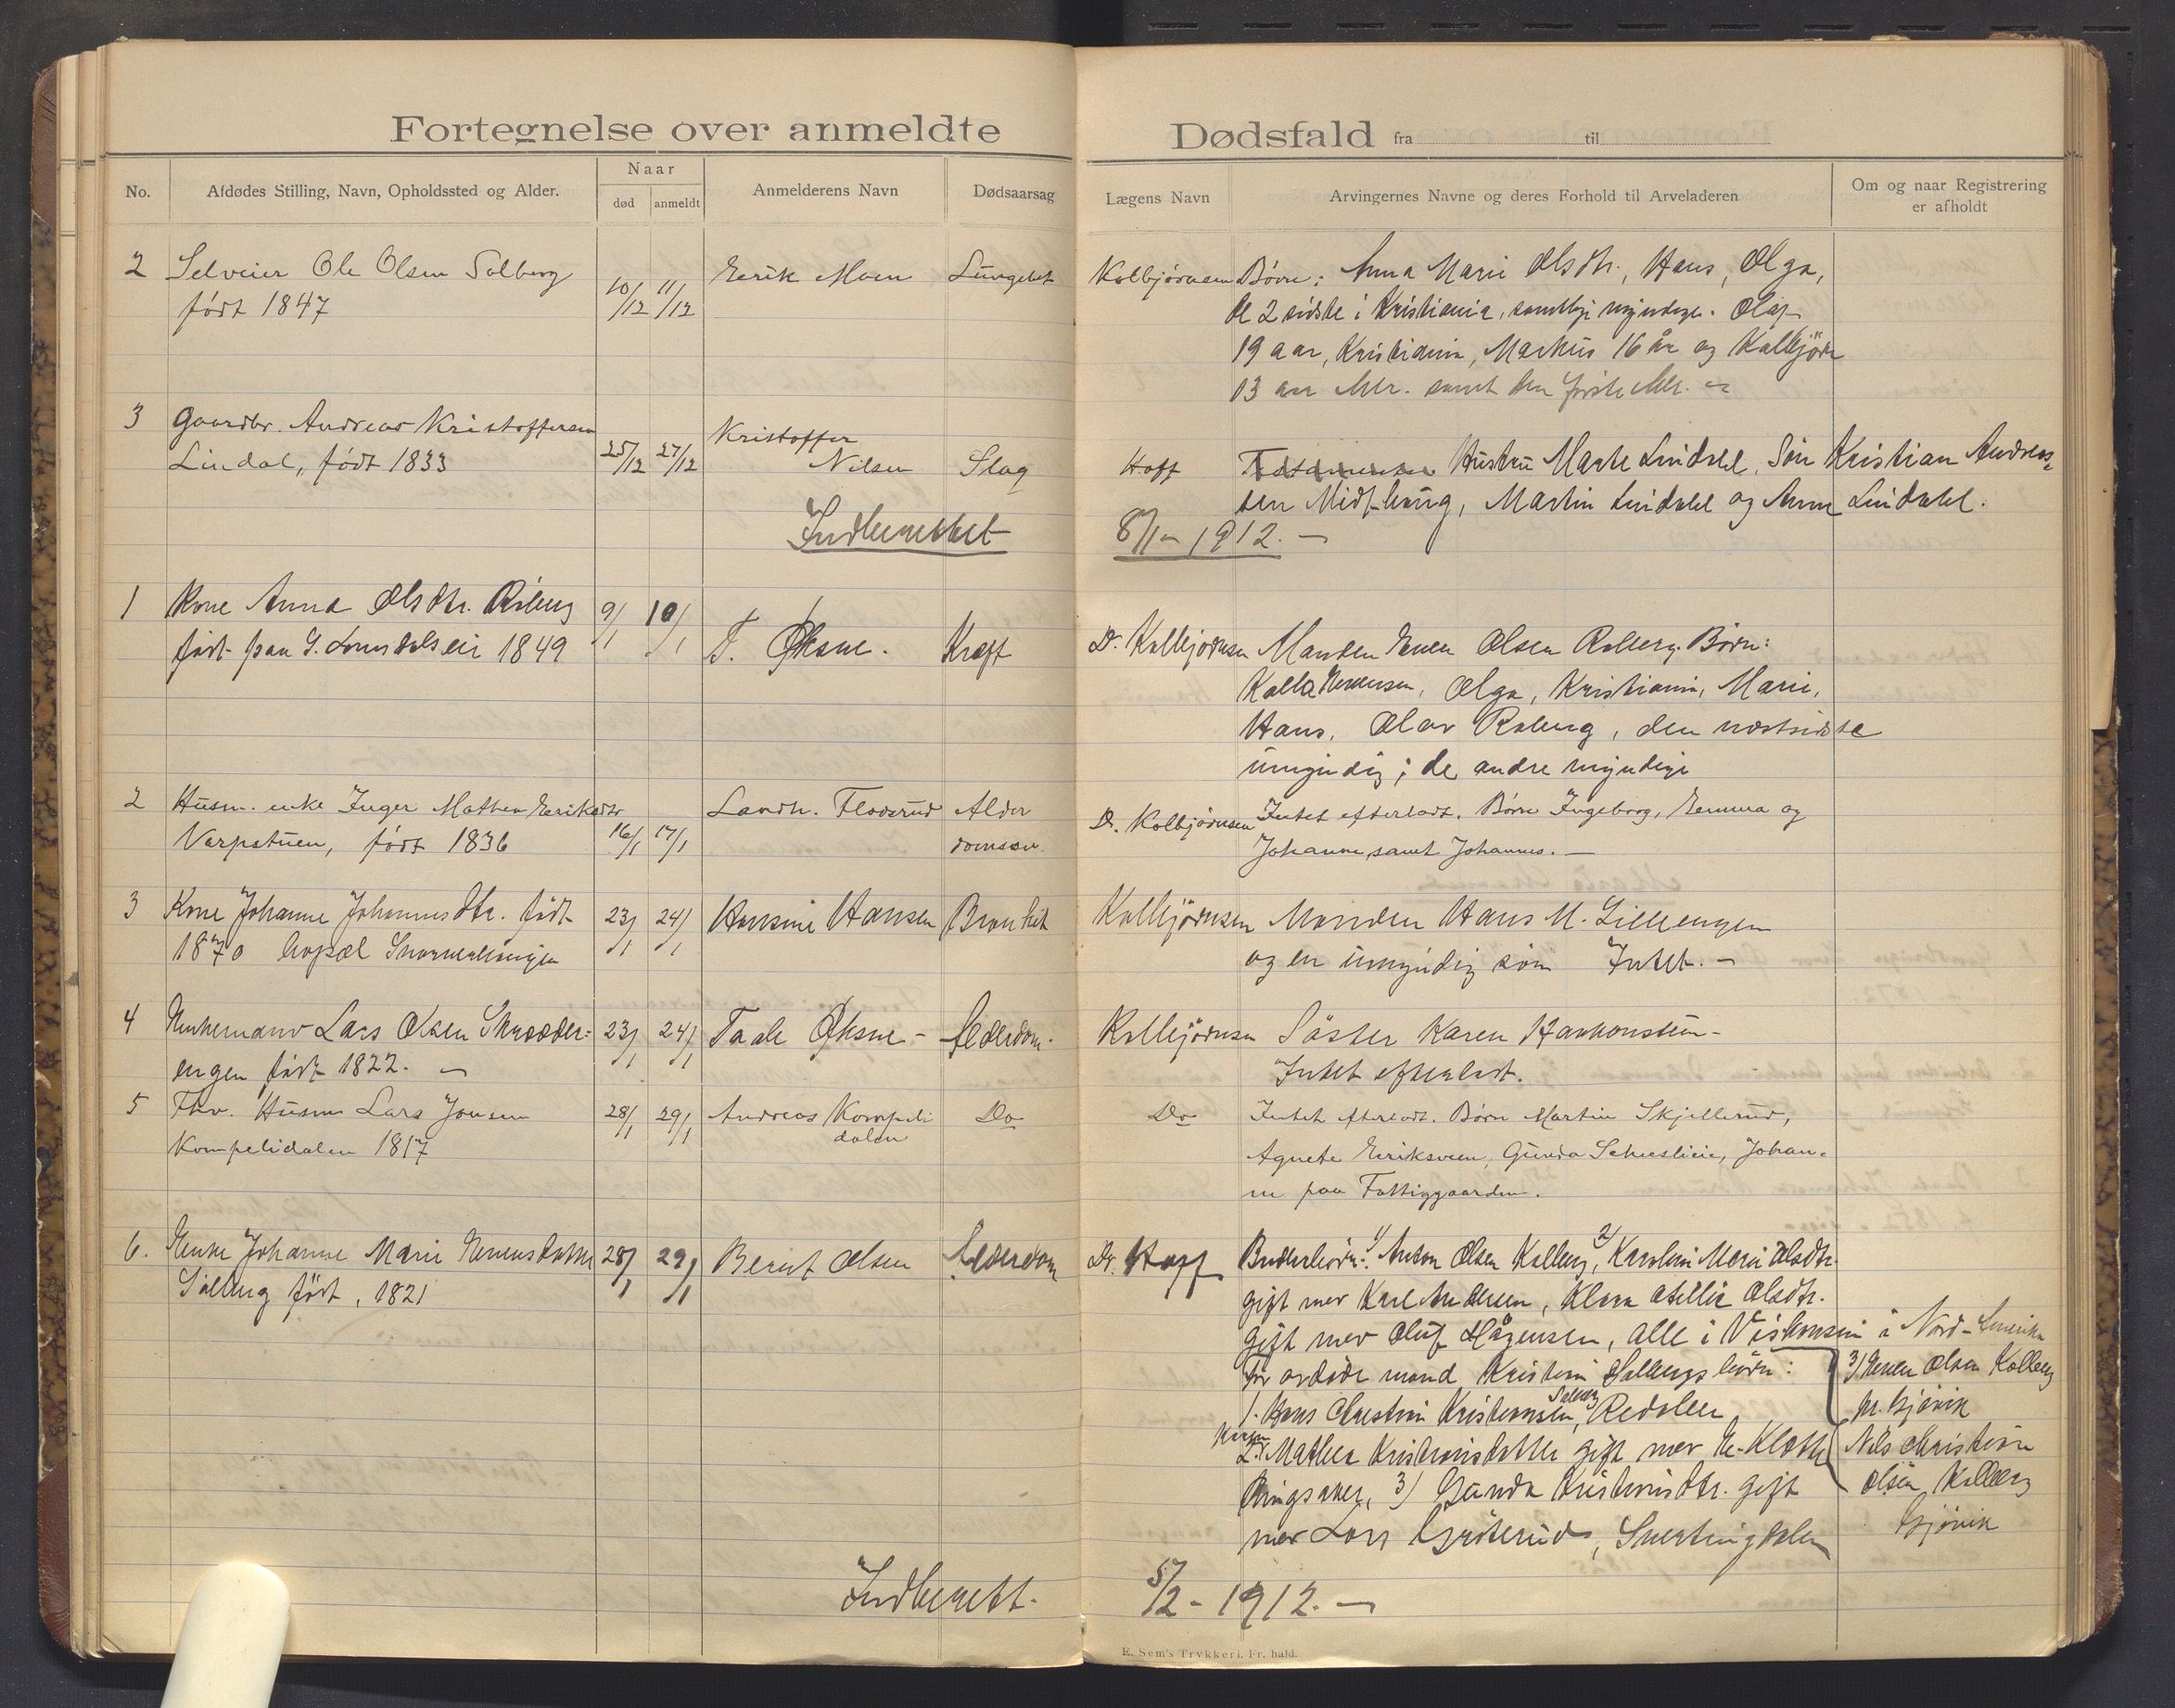 Fortegnelse over anmeldte Dødsfald fra til
No. Afdødes Stilling, Navn, Opholdssted og Alder. Naar død anmeldt Anmelderens Navn Dødsaarsag Lægens Navn Arvingernes Navne og deres Forhold til Arveladeren Om og naar Registrering er afholdt
2 Selveier Ole Olsen Solberg 10/12 11/12 Eerik Moen Lungebet Kolbjørnsen Børn: Anna Marie Olsdtr., Hans, Olga,
født 1847 de 2 sidste i Kristiania, samtlige myndige. Olaf
19 aar, Kristiania, Markus 16 år og Kolbjörn
13 aar samt den første
3 Gaardbr. Andreas Kristoffersen 25/12 27/12 Kristoffer Hustru Marte Lindahl, Sön Kristian Andreas-
Lindal, født 1833 Nilsen Slag Hoff sen Midthaug, Martin Lindahl og Anne Lindahl.
Indberettet 8/1- 1912. -
1 Kone Anna Olsdtr. Roberg 9/1 10/1 T. Øksne. Kræft Dr. Kolbjørnsen Manden Even Olsen Roberg. Børn:
født paa 1849 Kalla Evensen, Olga, Kristiania, Marie,
Hans, Olav Roberg, den næstsidste
umyndig; de andre myndige
2 Husm. enke Inger Mathea Eeriksdtr 16/1 17/1 Landh. Floderud Alderdomssv. Dr. Kolbjørnsen Intet efterladt. Børn Ingeborg, Emma og
Varpstuen, født 1836 Johanne, samt Johannes. -
3 Kone Johanne Johannesdtr. født 23/1 24/1 Hansine Hansen Bronkit Kolbjørnsen Manden Hans M. Lilleengen
1870 og en umyndig sön Intet. -
4 Enkemand Lars Olsen Skræder- 23/1 24/1 Taale Øksne - Alderdom. Kolbjørnsen Söster Karen Haakonstun -
engen født 1822. - Intet efterladt.
5 Fhv. Husm. Lars Jonsen 28/1 29/1 Andreas Kompeli Do Do Intet efterladt. Børn Martin Skjellerud,
Kompelidalen 1817 dalen Agnete Eeriksveen, Gunda Johan-
ne paa Fattiggaarden.
6. Enke Johanne Marie Evensdatter 28/1 29/1 Bernt Olsen Alderdom Dr. Hoff Broderbörn: 1/ Anton Olsen Kolberg, 2/ Karoline Marie Olsdtr.
Solberg født, 1821 gift med Karl Andersen, Klara Otillie Olsdtr.
gift med Oluf Hågensen, alle i Viskonsin i Nord-Amerika
för avdöde mand Kristian Solbergs börn: 3/ Even Olsen Kolberg
1. Hans Christian Kristiansen Solberg, Redalen pr. Gjövik
2. Karen Mathea Kristiansdatter gift med E. Klætte Nils Christian
Ringsaker, 3) Gunda Kristiansdtr. gift Olsen Kolberg
med Lars Gröterud, Snertingdalen Gjövik
Indberett. 5/2 - 1912. -
E. Sem's Trykkeri, Fr. hald.